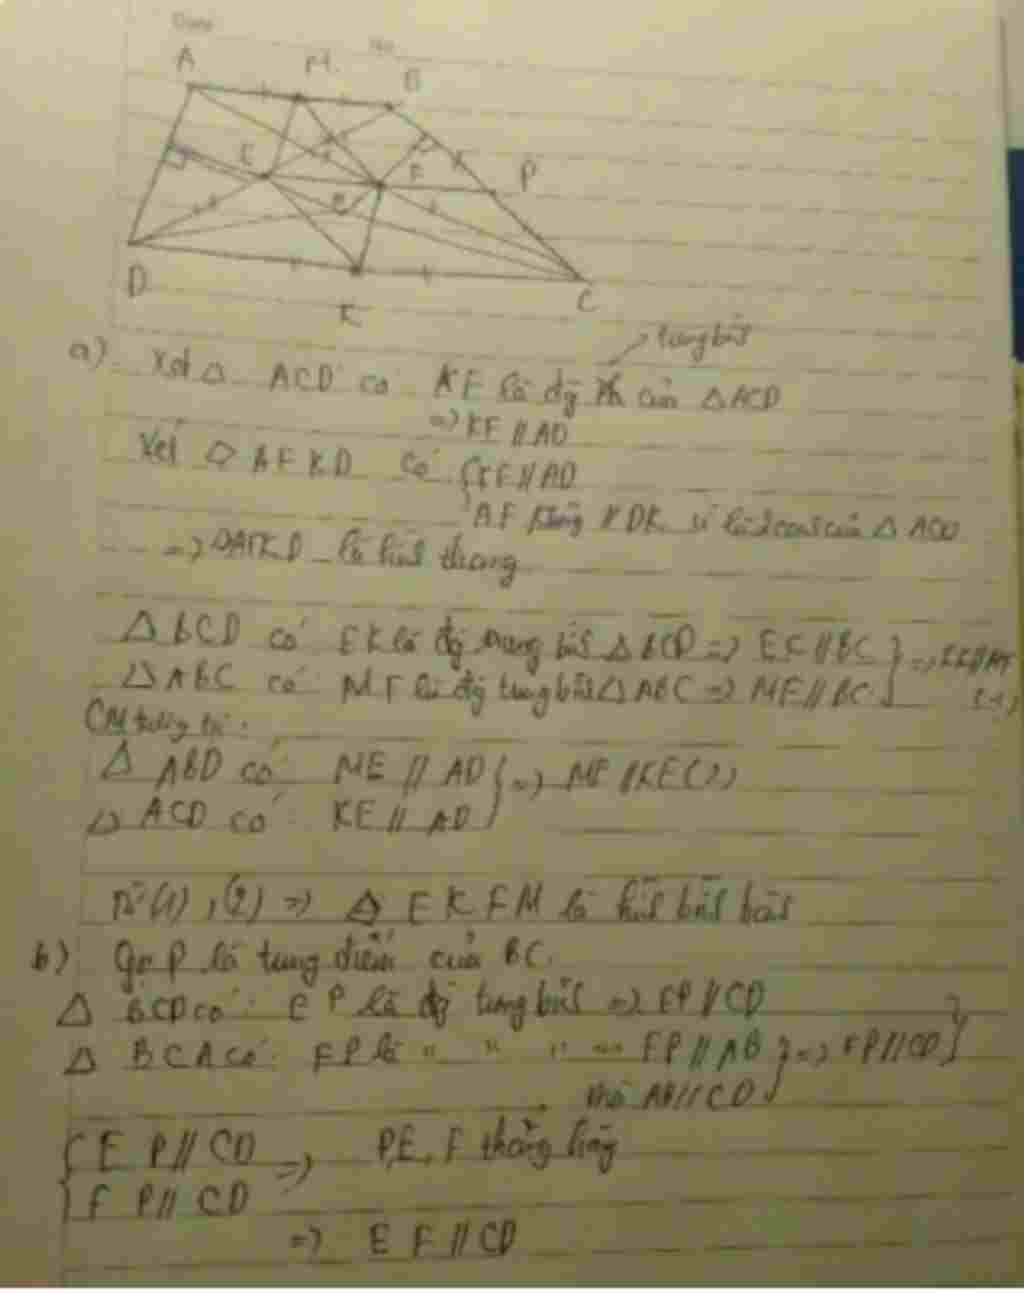 Date
No
A M B
E F P
D K C
a) Xét △ ACD có KF là đg Th của △ ACD
trung bình
=> KF // AD
Xét ◇ AFKD có { KF // AD
AF không // DK vì là 2 cạnh của △ ACD
=> ◇AFKD là hình thang
△ BCD có EK là đg trung bình △ BCD => EK // BC } => EK // MF
△ ABC có MF là đg trung bình △ ABC => MF // BC (1)
CM tương tự:
△ ABD có ME // AD } => MF // KE (2)
△ ACD có KE // AD
Từ (1), (2) => ◇ EKFM là hình bình hành
b) Gọi P là trung điểm của BC.
△ BCD có: EP là đg trung bình => EP // CD
△ BCA có: FP là " " " => FP // AB } => FP // CD }
mà AB // CD
{ E P // CD => P, E, F thẳng hàng
F P // CD
=> E F // CD